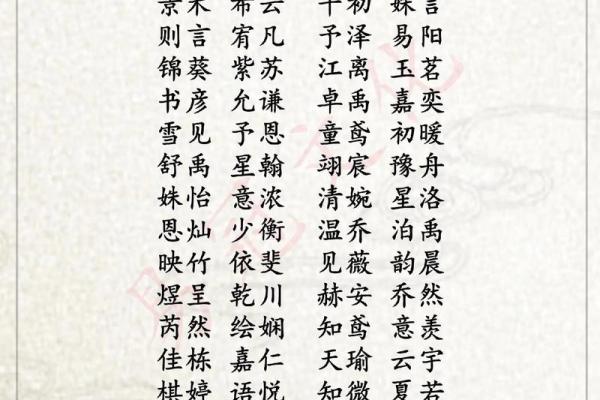 景禾 希云 千初 姝言
则言 宥凡 予泽 易阳
锦葵 紫苏 江离 玉茗
书彦 允谦 卓禹 嘉奕
雪见 予恩 童鸢 初暖
舒禹 星翰 翊宸 豫舟
姝怡 意浓 清婉 星洛
恩灿 少衡 温乔 泊禹
映竹 依斐 见薇 韵晨
煜呈 乾川 赫安 乔然
芮然 绘娴 知鸢 意羡
佳栋 嘉仁 天瑜 云宇
棋婷 语悦 知微 夏若